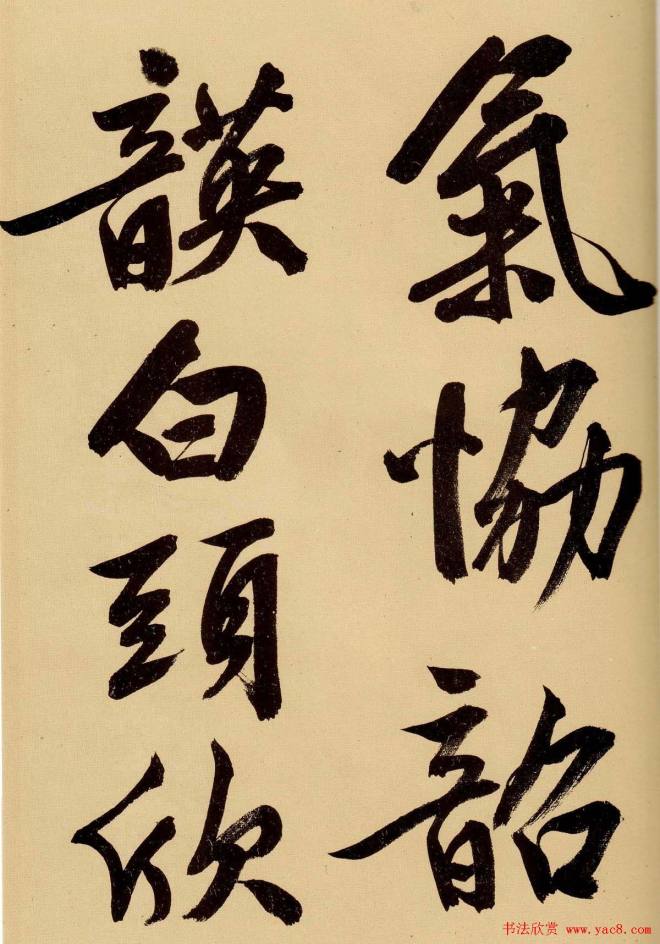 氣協韶
韺白頭欣
书法欣赏 www.yac8.com